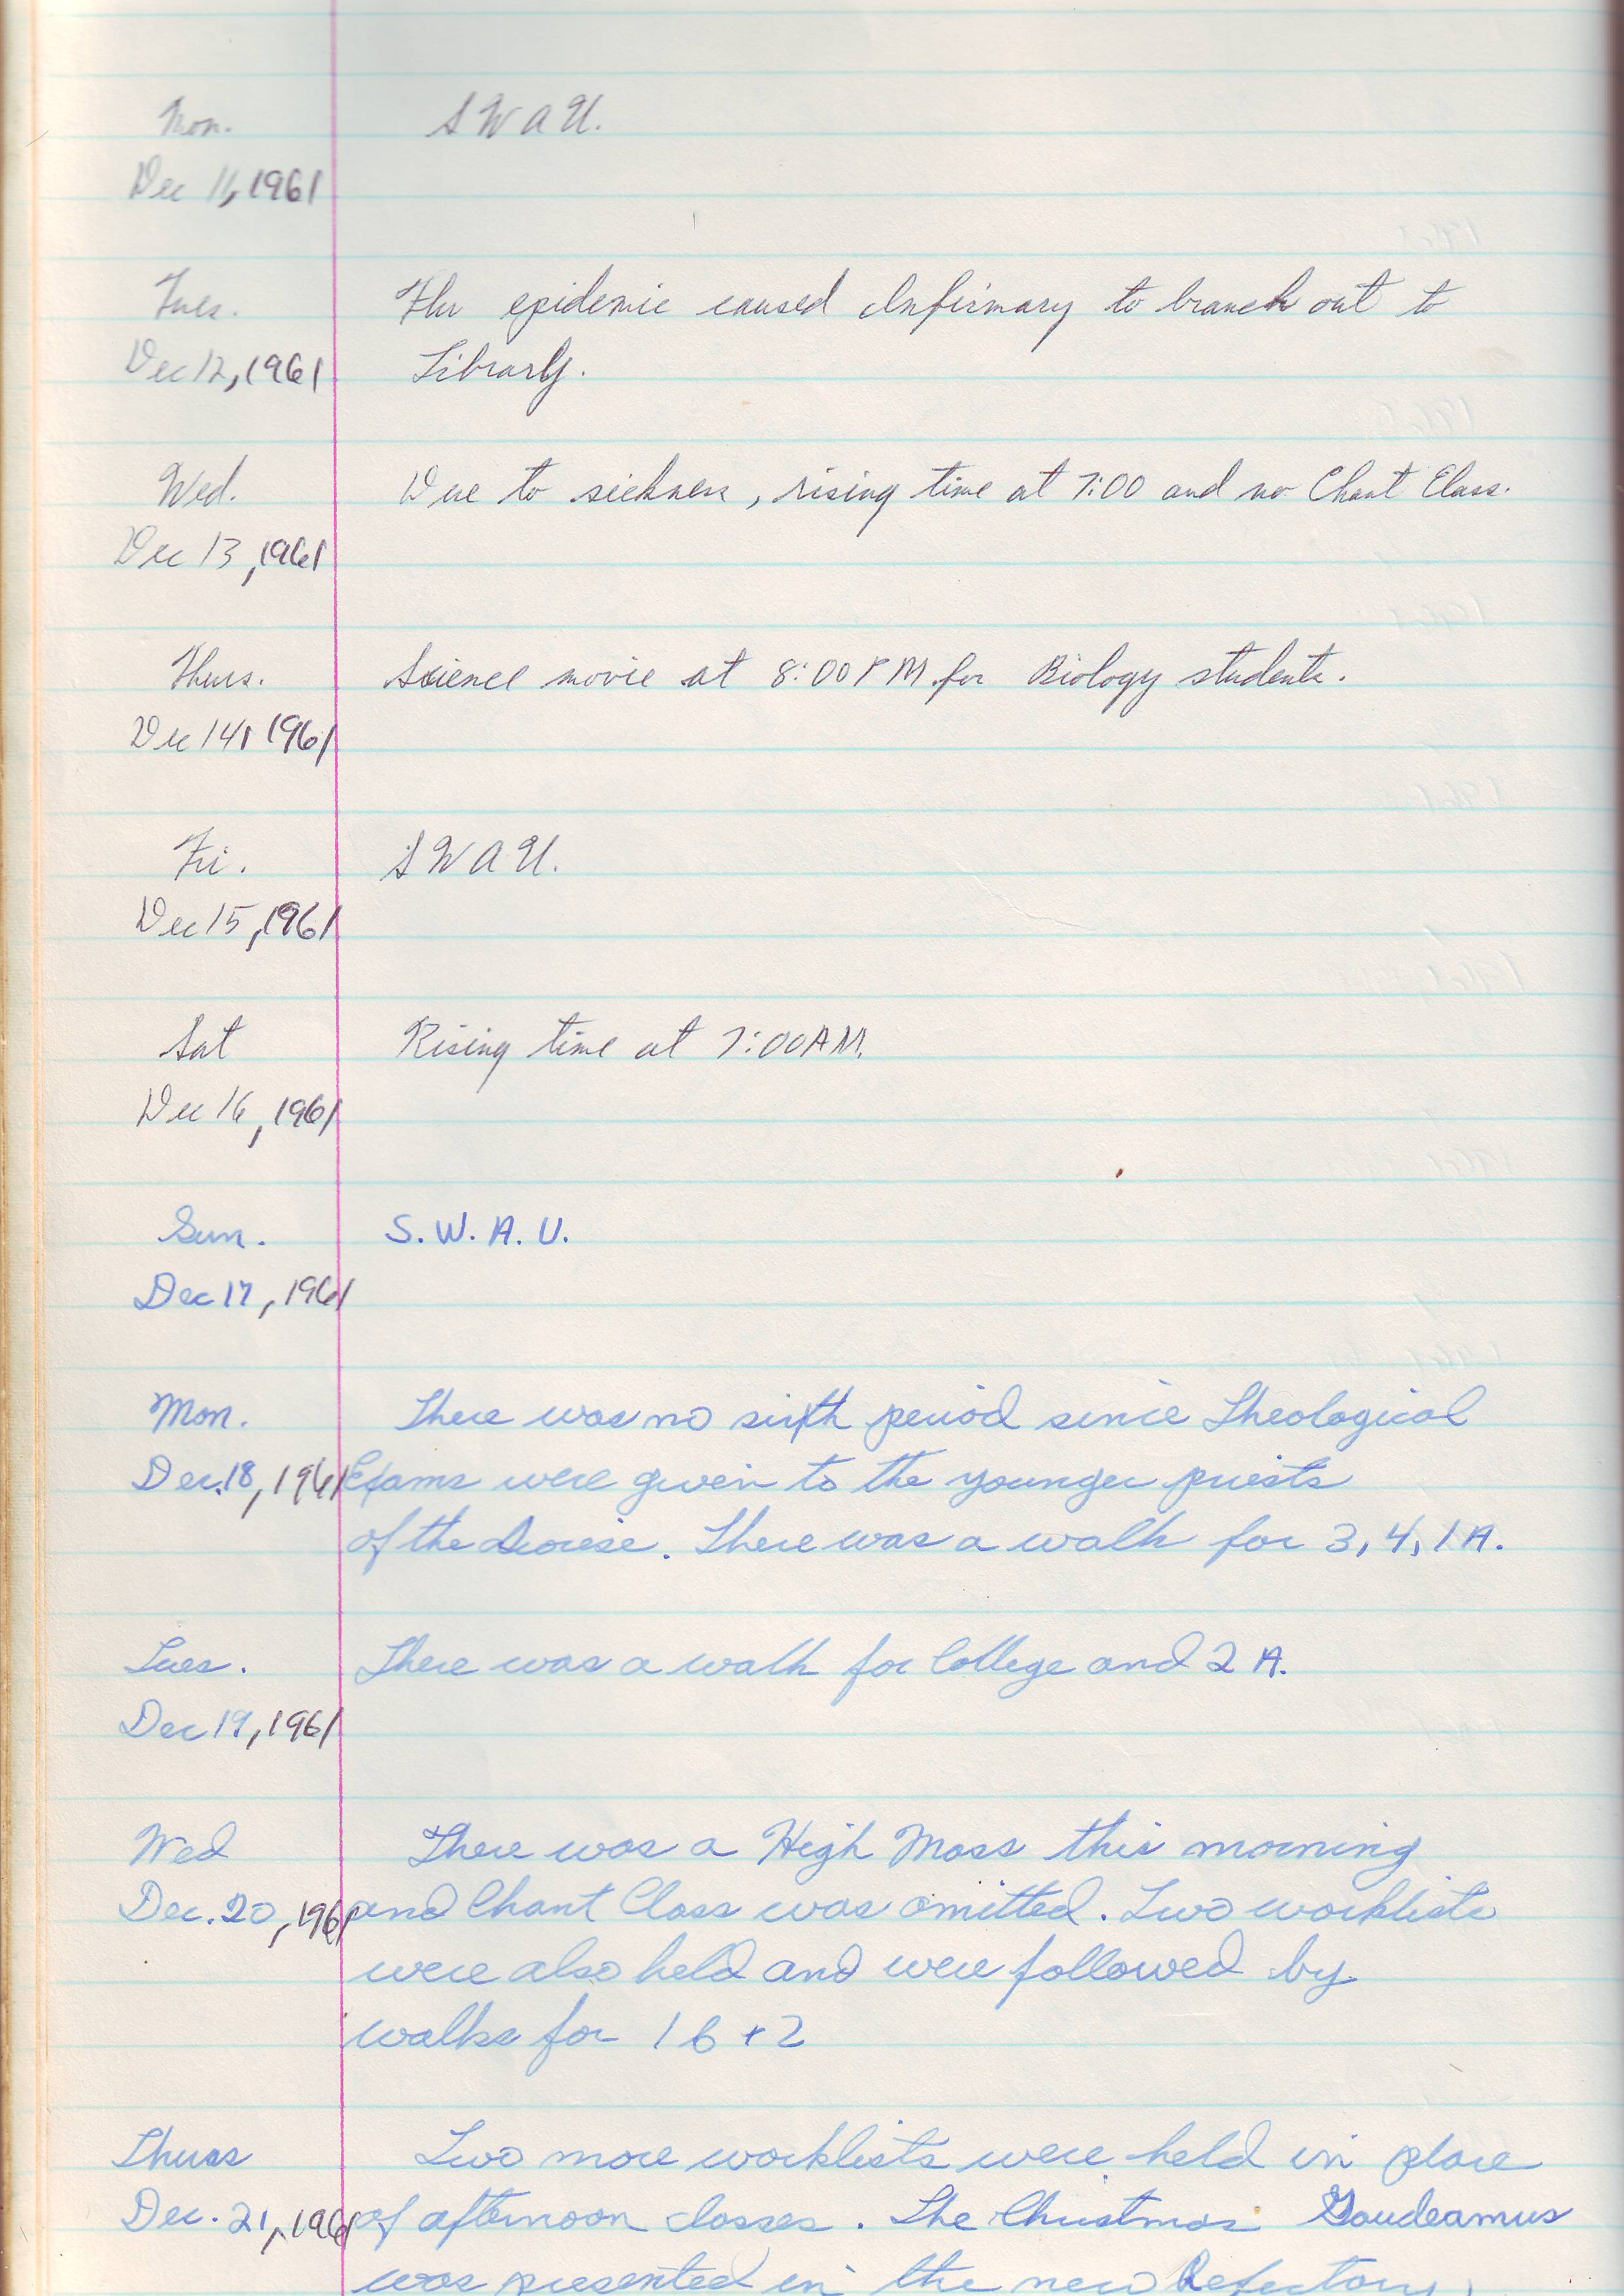 Mon. S W A U.
Dec 11, 1961
Tues. Flu epidemic caused Infirmary to branch out to
Dec 12, 1961 Library.
Wed. Due to sickness, rising time at 7:00 and no Chant Class.
Dec 13, 1961
Thurs. Science movie at 8:00 P M for Biology students.
Dec 14, 1961
Fri. S W A U.
Dec 15, 1961
Sat Rising time at 7:00 A M.
Dec 16, 1961
Sun. S. W. A. U.
Dec 17, 1961
Mon. There was no sixth period since Theological
Dec. 18, 1961 Exams were given to the younger priests
of the diocese. There was a walk for 3, 4, 1 A.
Tues. There was a walk for College and 2 A.
Dec 19, 1961
Wed There was a High Mass this morning
Dec. 20, 1961 and Chant Class was omitted. Two worklists
were also held and were followed by
walks for 1 B + 2
Thurs Two more worklists were held in place
Dec. 21, 1961 of afternoon classes. The Christmas Gaudeamus
was presented in the new Refectory,